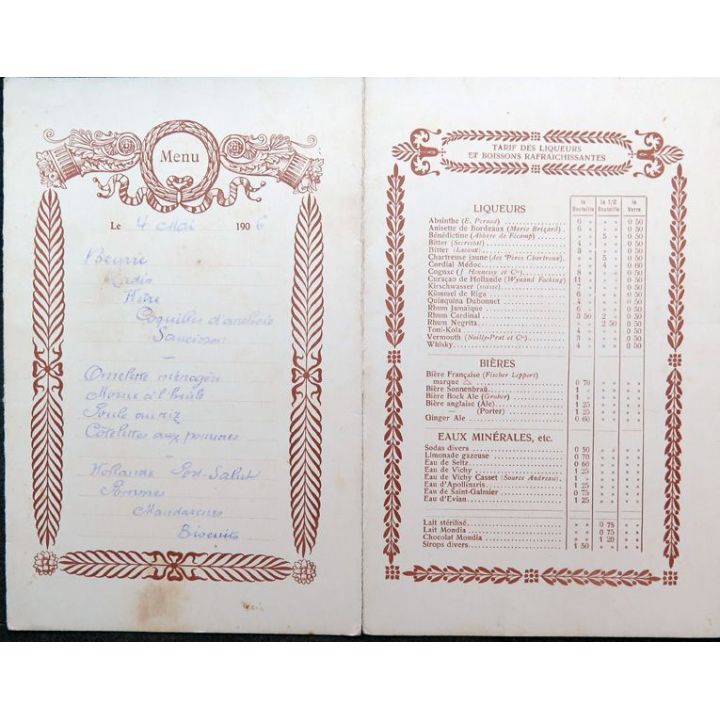 Menu
Le 4 Mai 1906
Beurre
Radis
Coquilles d'anchois
Saucisson
—
Omelette ménagère
Morue à l'huile
Poule au riz
Côtelettes aux pommes
—
Hollande Port-Salut
Pommes
Mandarines
Biscuits
TARIF DES LIQUEURS
ET BOISSONS RAFRAICHISSANTES
LIQUEURS la Bouteille la 1/2 Bouteille le Verre
Absinthe (E. Pernod) 6 » » 0 50
Anisette de Bordeaux (Marie Brizard) 6 » » 0 50
Bénédictine (Abbaye de Fécamp) » 5 0 50
Bitter (Secrestat) 4 » » 0 50
Bitter 3 » » 0 50
Chartreuse jaune (des Pères Chartreux) » 5 0 50
Cordial Médoc 0 60
Cognac (J Hennessy et Cie) 8 » » 0 50
Curaçao de Hollande (Wynand Focking) 11 » » 0 50
Kirschwasser (suisse) 7 » » 0 50
Kümmel de Riga 6 » » 0 50
Quinquina Dubonnet 4 » » 0 50
Rhum Jamaïque 6 » » 0 50
Rhum Cardinal 3 50 2 » 0 50
Rhum Negrita » 2 50 0 50
Toni-Kola 4 » » 0 50
Vermouth (Noilly-Prat et Cie) 3 » » 0 50
Whisky 4 » » 0 50
BIÈRES
Bière Française (Fischer Leppert)
marque 0 70
Bière Sonnenbraü 1 »
Bière Bock Ale (Gruber) 1 »
Bière anglaise (Ale) 1 25
— (Porter) 1 25
Ginger Ale 0 60
EAUX MINÉRALES, etc.
Sodas divers 0 50
Limonade gazeuse 0 70
Eau de Seltz 0 60
Eau de Vichy 1 25
Eau de Vichy Casset (Source Andréaux) 1 »
Eau d'Apollinaris 1 25
Eau de Saint-Galmier 0 75
Eau d'Evian 1 25
Lait stérilisé 0 75
Lait Mondia 0 75
Chocolat Mondia 1 20
Sirops divers 1 50